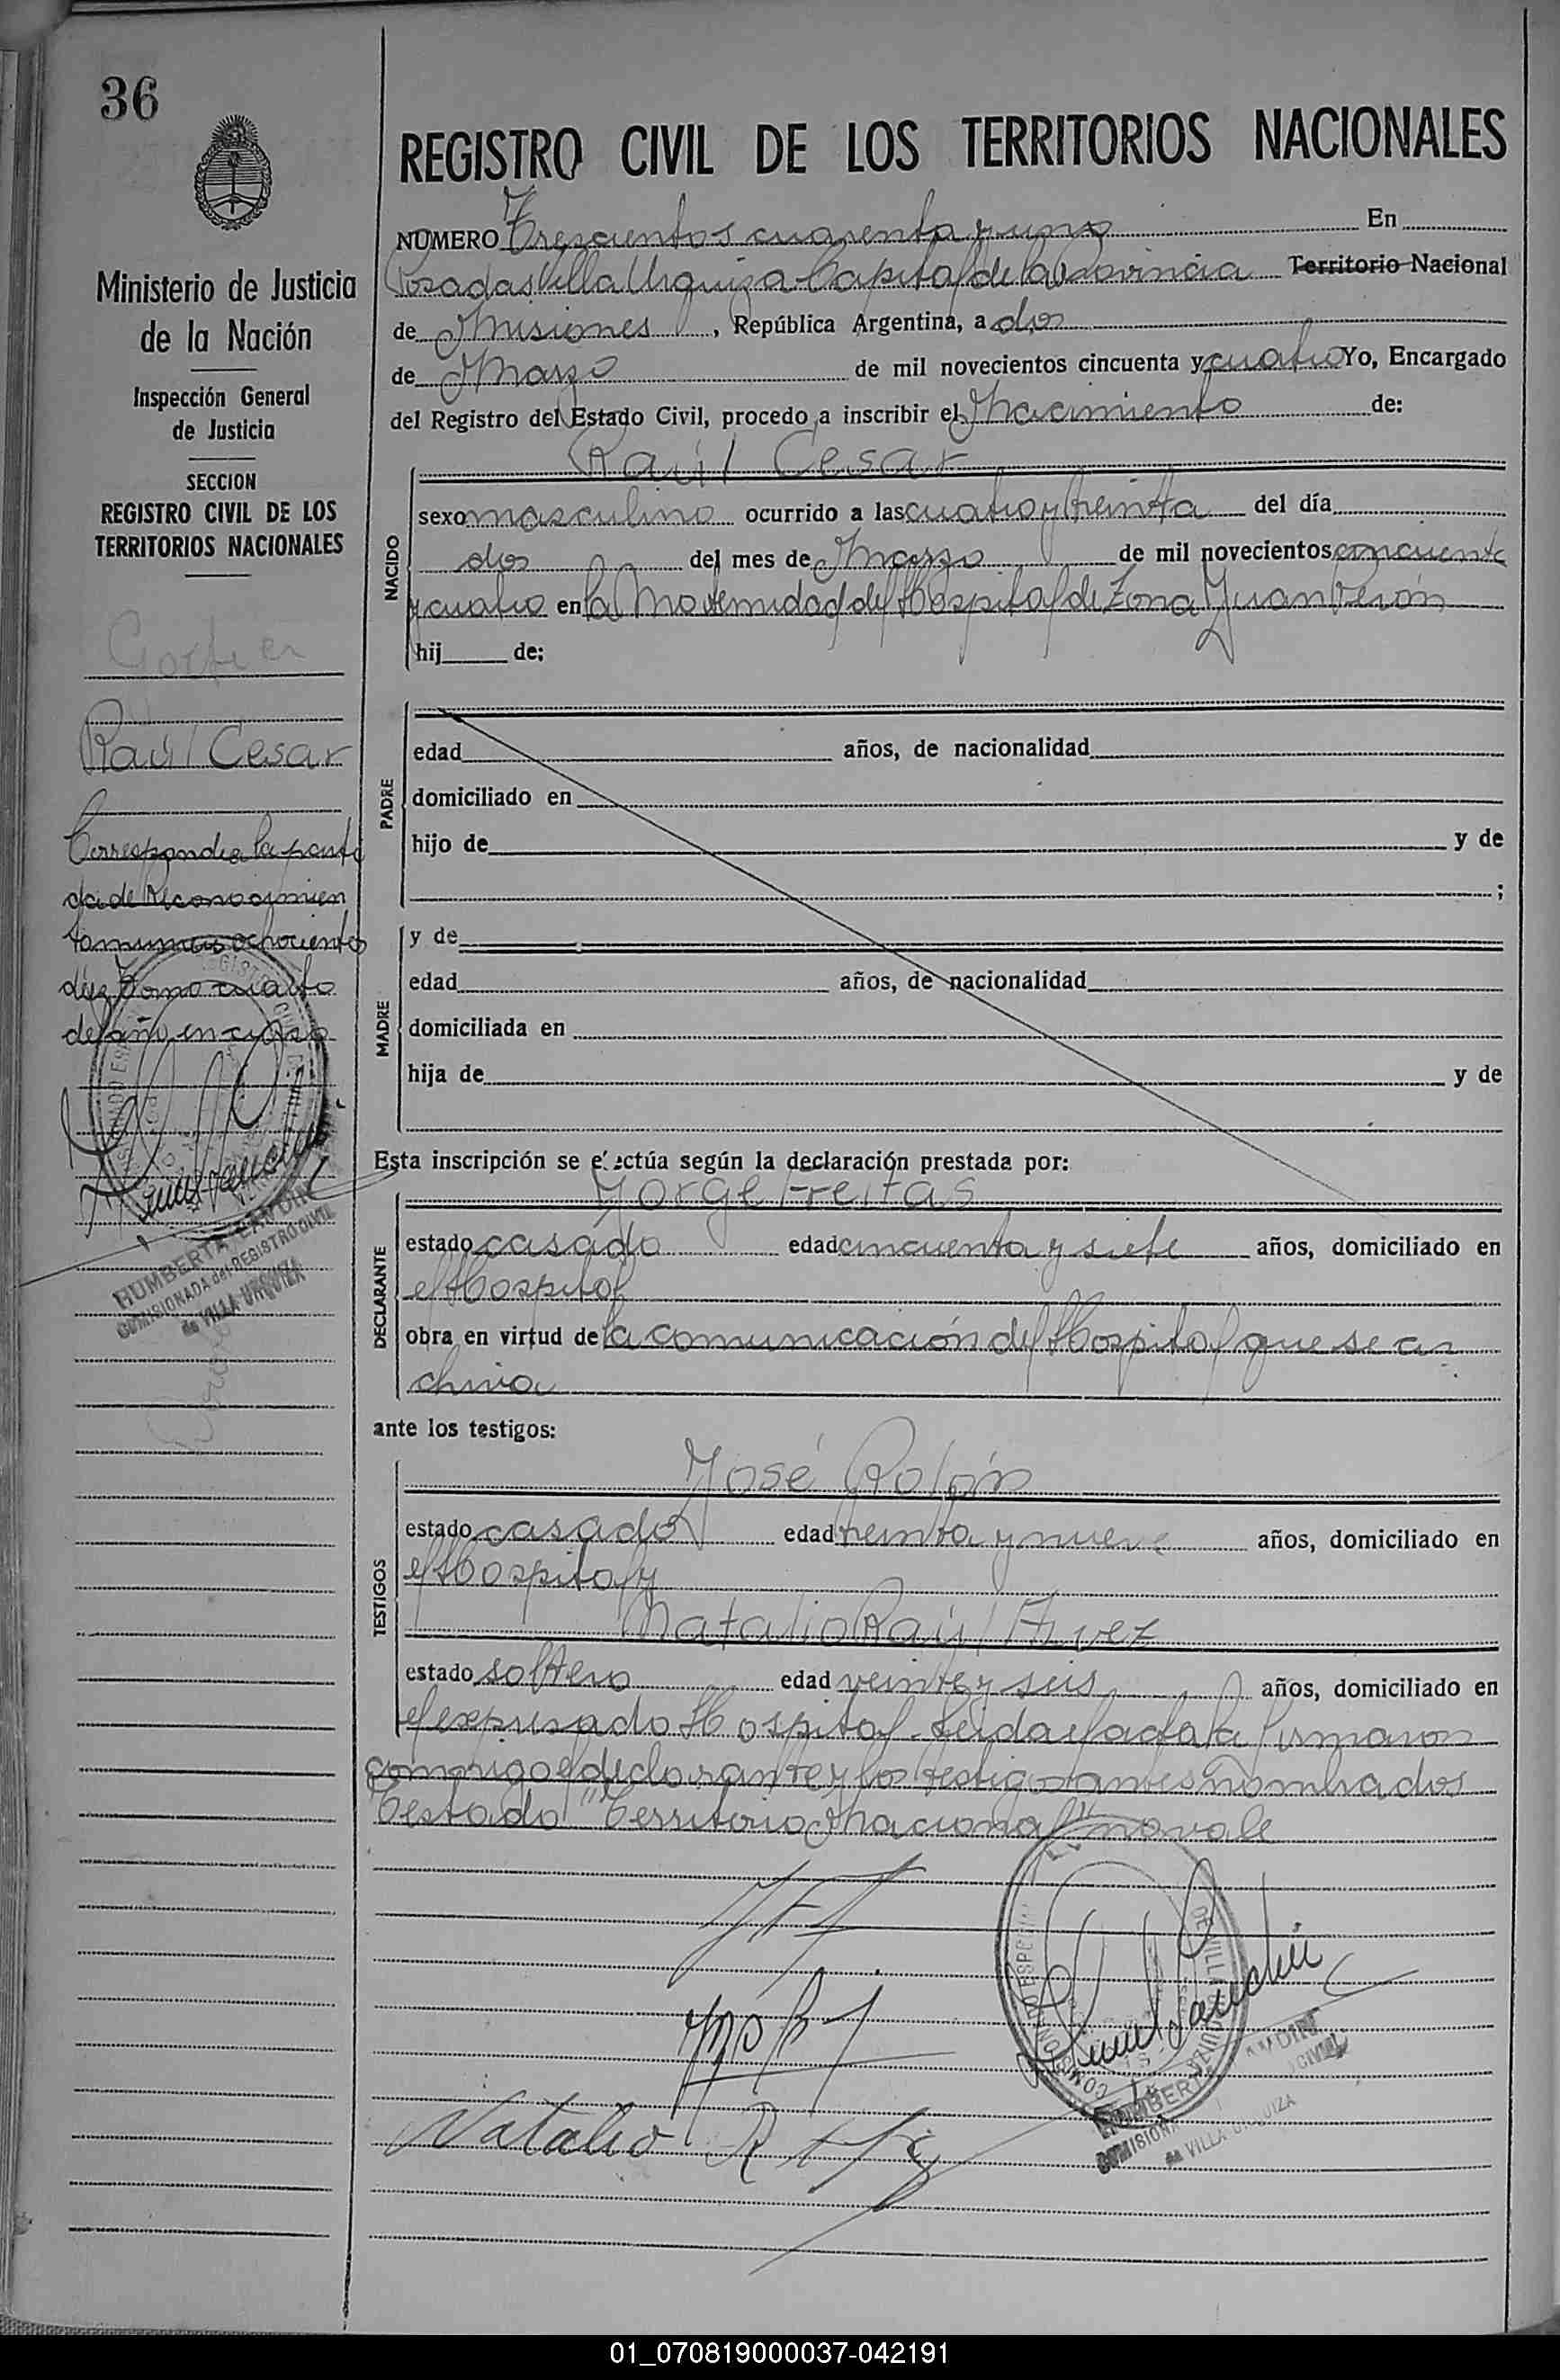 36
Ministerio de Justicia
de la Nación
Inspección General
de Justicia
SECCION
REGISTRO CIVIL DE LOS
TERRITORIOS NACIONALES
Raúl Cesar
Corresponde a la parti
da de Reconocimien
to número ochocientos
diez Tomo cuarto
del año en curso
HUMBERTA LANDIN
COMISIONADA del REGISTRO CIVIL
de VILLA URQUIZA
REGISTRO CIVIL DE LOS TERRITORIOS NACIONALES
NUMERO Trescientos cuarenta y uno En
Posadas Villa Urquiza Capital de la Provincia Territorio Nacional
de Misiones, República Argentina, a dos
de Marzo de mil novecientos cincuenta y cuatro Yo, Encargado
del Registro del Estado Civil, procedo a inscribir el Nacimiento de:
Raúl Cesar
NACIDO
sexo masculino ocurrido a las cuatro y treinta del día
dos del mes de Marzo de mil novecientos cincuenta
y cuatro en la Maternidad del Hospital de Zona Juan Perón
hij de:
PADRE
edad años, de nacionalidad
domiciliado en
hijo de y de
;
MADRE
y de
edad años, de nacionalidad
domiciliada en
hija de y de
Esta inscripción se efectúa según la declaración prestada por:
Jorge Freitas
DECLARANTE
estado casado edad cincuenta y siete años, domiciliado en
el Hospital
obra en virtud de la comunicación del Hospital que se ar
chiva
ante los testigos:
José Rolón
TESTIGOS
estado casado edad treinta y nueve años, domiciliado en
el Hospital y
Natalio Raúl
estado soltero edad veinte y seis años, domiciliado en
el expresado Hospital. Leida el acta la firmaron
conmigo el declarante y los testigos antes nombrados
Testado "Territorio Nacional" no vale
Natalio R
HUMBERTA LANDIN
COMISIONADA CIVIL
de VILLA URQUIZA
01_070819000037-042191